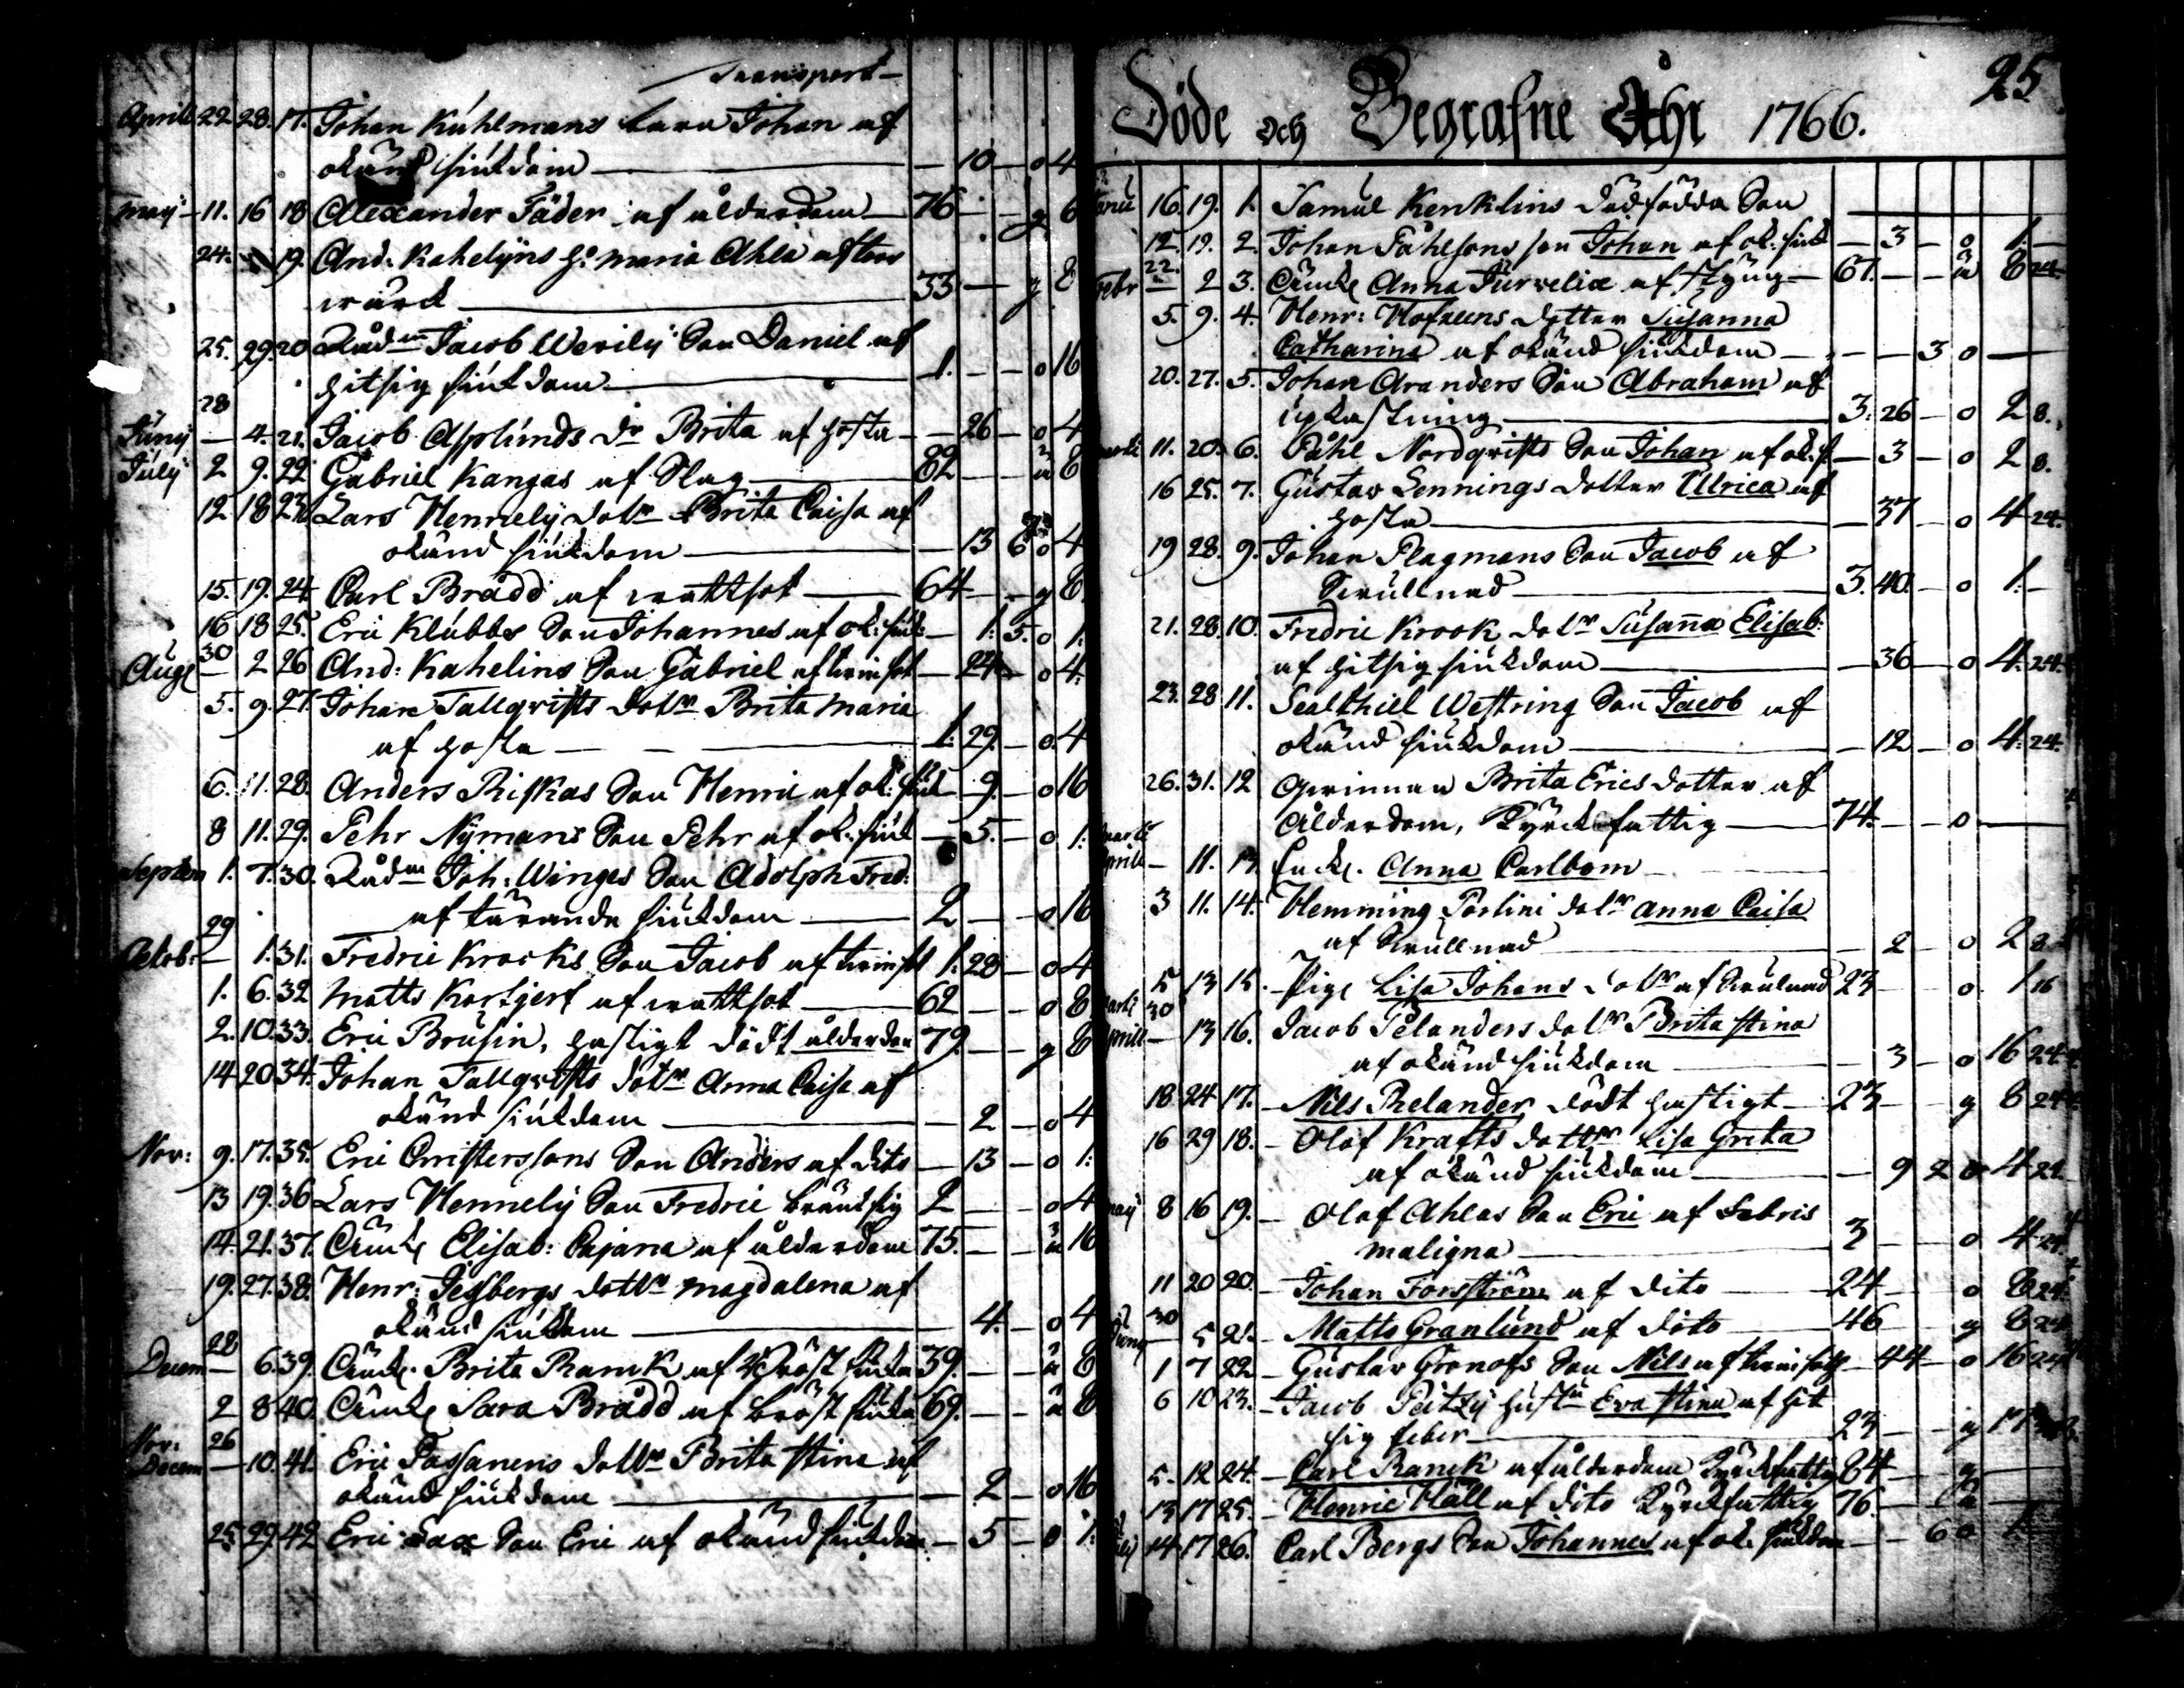 Transport
Aprill 22. 28. 17. Johan Kuhlmans barn Johan af
okänd siukdom — 10 — o 4
Maij 11. 16 18 Alexander Fäder af ålderdom 76 — g 6
24. 19. And. Kahelijns h. Maria Ahla af
wärck 33 — g 8
25. 29. 20 Rådm Jacob Werilij Son Daniel af
hitsig siukdom 1. — o 16
28
Junij — 4. 21. Jacob Asplunds dr Brita af hosta — 26 — o 4
Julij 2 9. 22 Gabriel Kangas af Slag 82 — ä 8
12 18 23. Lars Hennelij dottr Brita Caisa af
okänd siukdom — 13 6 o 4
15. 19. 24. Carl Brådd af wattsot 64 — g 8
16 18 25. Eric Klubbs Son Johannes af ok: siuk — 1. 5. o 1:
Aug 30 — 2 26 And: Kahelins Son Gabriel af twinsot — 24 — o 4.
5. 9. 27. Johan Tallqvists dottr Brita Maria
af hosta — 1. 29. — o. 4
6. 11. 28. Anders Riskas Son Henric af ok: siuk — 9. — o 16
8 11. 29. Pehr Nÿmans Son Pehr af ok: siuk — 5. — o 1:
Septem 1. 7. 30. Rådm Joh: Winges Son Adolph Fred:
af tärande siukdom — 2 — o 16
29
Octob: — 1. 31. Fredric Krooks Son Jacob af twinsot 1. 28 — o 4
1. 6. 32 Matts Kortjerf af wattsot — 62 — o 8
2. 10. 33. Eric Brusin, hastigt dödt ålderdom 79. — g 8
14 20 34. Johan Tallqvists dottr Anna Caisa af
okänd siukdom — 2 — o 4
Nov: 9. 17. 35. Eric Christerssons Son Anders af dito — 13 — o 1:
13 19. 36 Lars Hennelij Son Fredric 2 — o 4
14. 21. 37. Änck Elisab: Cajana af ålderdom 75. — ä 16
19. 27. 38. Henr: dottr Magdalena af
okänd siukdom — 4. — o 4
28
Decem — 6. 39. Änck. Brita Ranck af Bröst siuka 39. — ä 8
2 8 40. Änck Sara Brådd af bröst siuka 69. — ä 8
Nov: 26
Decem — 10. 41. Eric Passanens dottr Brita Stina af
okänd siukdom — 2 — o 16
25. 29. 42 Eric Sax Son Eric af okänd siukdom — 5 — o 1:
25
Döde och Begrafne Åhr 1766.
16. 19. 1. Samul Kenklins dödfödda Son
12. 19. 2. Johan Påhlsons son Johan af ok. siuk — 3 — o 1. —
Febr 22 — 2 3. Änck Anna Jurvelia af styng 67. — ä 8 24
5. 9. 4. Henr: Hofreens dotter Susanna
Catharina af okänd siukdom — 3 o —
20. 27. 5. Johan Aranders Son Abraham af
upkastning — 3. 26 — o 2 8.
11. 20. 6. Påhl Nordqvists Son Johan af ok. s. — 3 — o 2 8.
16 25. 7. Gustav Lennings dotter Ullrica af
hosta — 37 — o 4 24.
19 28. 9. Johan Plagmans Son Jacob af
Swullnad — 3. 40. — o 1: —
21. 28. 10. Fredric Krook dottr Susanna Elisab:
af hitsig siukdom — 36 — o 4. 24.
23. 28 11. Sealthiel Westring Son Jacob af
okänd siukdom — 12 — o 4. 24.
26. 31. 12 Qwinnan Brita Erics dotter af
Ålderdom, Kyrckfattig 74. — o —
Aprill — 11. 13. Enck. Anna Carlbom
3 11. 14. Hemming Portini dottr Anna Caisa
af Swullnad — 2 — o 2 8.
5 13 15. Pig. Lisa Johans dottr af Swulnad 23 — o 1 16
30
Aprill — 13 16. Jacob Pelanders dottr Brita Stina
af okänd siukdom — 3 — o 16 24
18 24 17. Nils Relander dödt hastigt — 23 — g 8 24
16 29 18. Olof Krafts dottr Lisa Greta
af okänd siukdom — 9 2 o 4 24.
Maij 8 16 19. Olof Ahlas Son Eric af Febris
maligna 3 — o 4 24.
11 20 20. Johan Forsström af dito — 24 — o 8 24.
30
— 5 21. Matts Granlund af dito — 46 — g 8 24
1 7 22. Gustav Gronofs Son Nils af twinsot — 44 — o 16 24
6 10 23. Jacob Peitzij hustru Eva Stina af hit
sig feber — 23 — g 17
5. 12 24. Carl Ranck af ålderdom Kyrckfattig 84 — g —
13 17 25. Henric Häll af dito Kyrckfattig 76. — ä —
14 17 26. Carl Bergs Son Johannes af ok. siukdom — 6 o 1.